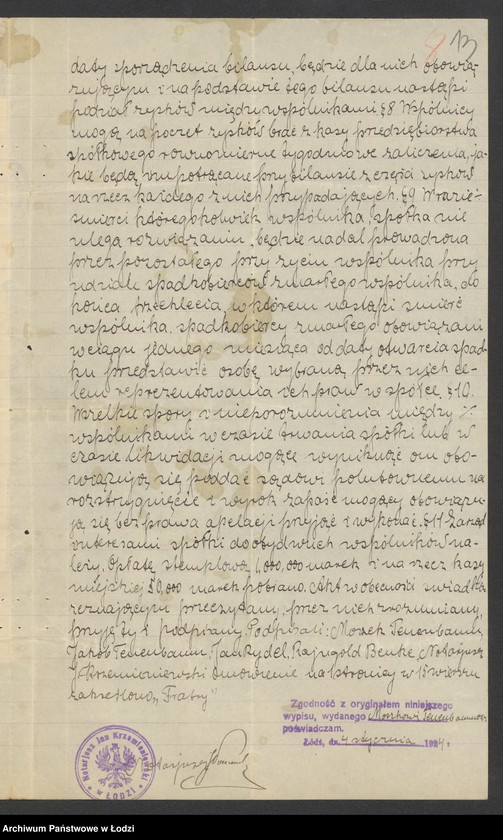 13
daty sporządzenia bilansu, będzie dla nich obowią-
zującym i na podstawie tego bilansu nastąpi
podział zysków między wspólnikami § 8 Wspólnicy
mogą na poczet zysków brać z kasy przedsiębiorstwa
spółkowego równomierne tygodniowe zaliczenia, ja-
kie będą im potrącane przy bilansie z części zysków
na rzecz każdego z nich przypadających. § 9 W razie
śmierci któregokolwiek wspólnika, spółka nie
ulega rozwiązaniu, będzie nadal prowadzona
przez pozostałego przy życiu wspólnika przy
udziale spadkobierców zmarłego wspólnika, do
końca trzechlecia, w którem nastąpi śmierć
wspólnika. spadkobiercy zmarłego obowiązani
w ciągu jednego miesiąca od daty otwarcia spad-
ku przedstawić osobę wybraną przez nich ce-
lem reprezentowania ich praw w spółce. § 10.
Wszelkie spory i nieporozumienia między
wspólnikami w czasie trwania spółki lub w
czasie likwidacji mogące wyniknąć oni obo-
wiązują się poddać sądowi polubownemu na
rozstrzygnięcie i wyrok zapaść mogący obowiązu-
ją się bez prawa apelacji przyjąć i wykonać. § 11 Zarząd
interesami spółki do obydwóch wspólników na-
leży. Opłatę stemplową 1,000,000 marek i na rzecz kasy
miejskiej 50,000 marek pobrano. Akt w obecności świadków
zeznającym przeczytany, przez nich zrozumiany,
przyjęty i podpisany. Podpisali: Moszek Tenenbaum,
Jakób Tenenbaum, Jan Rydel, Rajngold Benke, Notarjusz
J Krzemieniewski Omówienie na stronicy w 15 wierszu
zakreślono „Fratry”
Zgodność z oryginałem niniejszego
wypisu, wydanego Moszkowi Tenenbaumowi
poświadczam.
Łódź, dn. 4 stycznia 1924 r.
Notarjusz
Notarjusz Jan Krzemieniewski
w ŁODZI
Archiwum Państwowe w Łodzi